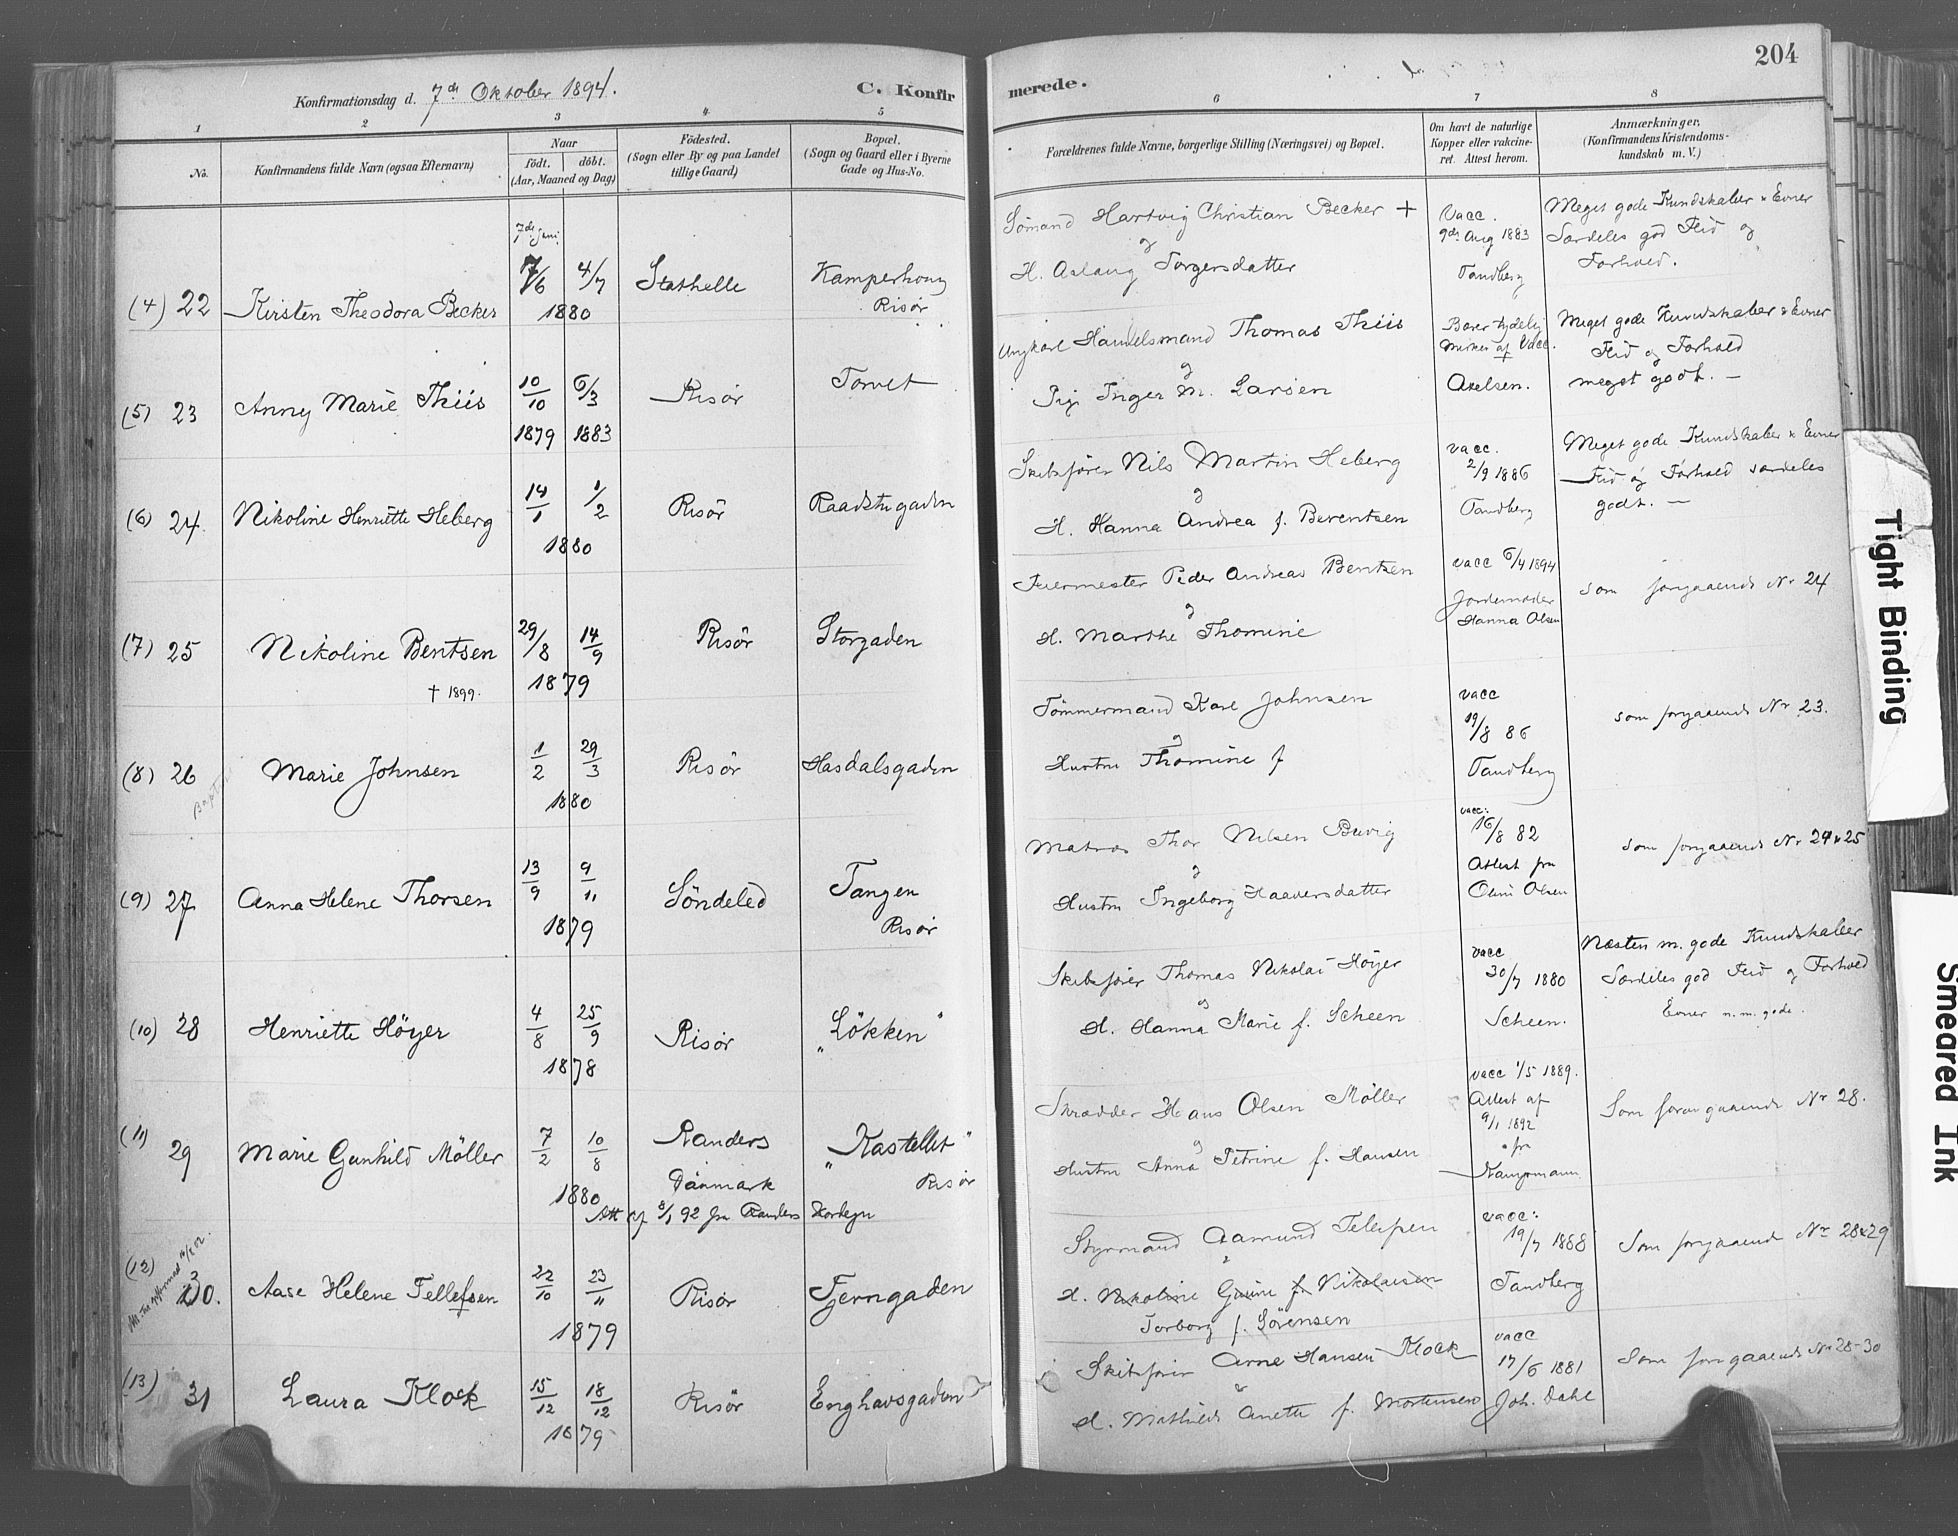 204
Konfirmationsdag d. 7de Oktober 1894. C. Konfirmerede.
1 2 3 4 5 6 7 8
No. Konfirmandens fulde Navn (ogsaa Efternavn) Naar født. døbt. (Aar, Maaned og Dag) Fødested. (Sogn eller By og paa Landet tillige Gaard) Bopæl. (Sogn og Gaard eller i Byerne Gade og Hus-No. Forældrenes fulde Navne, borgerlige Stilling (Næringsvei) og Bopæl. Om havt de naturlige Kopper eller vakcineret. Attest herom. Anmærkninger. (Konfirmandens Kristendomskundskab m. V.)
7de Juni
(4) 22 Kirsten Theodora Becker 7/6 4/7 1880 Stathelle Kamperhoug Risør
Sømand Hartvig Christian Becker +
og
H. Aslaug Torgersdatter
Vacc.
9de Aug 1883
Tandberg
Meget gode Kundskaber & Evner
Særdeles god Flid og
Forhold.
(5) 23 Anny Marie Thiis 10/10 1879 6/3 1883 Risør Torvet
Ungkarl Handelsmand Thomas Thiis
og
Pige Inger M. Larsen
Bærer tydelig
Mærker af Vacc.
Axelsen.
Meget gode Kundskaber & Evner
Flid og Forhold
meget godt. —
(6) 24. Nikoline Henriette Heberg 14/1 1/2 1880 Risör Raadstugaden
Skibsfører Nils Martin Heberg
og
H. Hanna Andrea f. Berentsen
vacc.
2/9 1886
Tandberg
Meget gode Kundskaber & Evner
Flid og Forhold særdeles
godt. —
(7) 25 Nikoline Bentsen 29/8 14/9 1879 Risör Storgaden
† 1899.
Feiermester Peder Andreas Bentsen
og
H. Marthe Thomine
vacc 6/4 1894
Jordemoder
Hanna Olsen
som forgaaende Nr 24
(8) 26 Marie Johnsen 1/2 29/3 1880 Risör Hasdalsgaden
Tömmermand Karl Johnsen
og
Hustru Thomine f
vacc
19/8 86
Tandberg
som forgaaende Nr 23.
(9) 27 Anna Helene Thorsen 13/9 9/11 1879 Söndeled Tangen Risör
Matros Thor Nilsen Buvig
og
Hustru Ingeborg Haaversdatter
vacc:
16/8 82
Attest fra
Oluf Olsen
som forgaaende Nr 24 & 25
(10) 28 Henriette Höyer 4/8 25/9 1878 Risör „Lökken“
Skibsfører Thomas Nikolai Höyer
og
H. Hanna Marie f. Scheen
vacc
30/7 1880
Scheen.
Næsten m. gode Kundskaber
Særdeles god Flid og Forhold
Evner n. m. gode.
(11) 29 Marie Gunhild Möller 7/2 10/8 1880 Randers Danmark „Kastellet“ Risör
Att af 8/1 92 fra Randers Kordegn
Skrædder Hans Olsen Møller
og
Hustru Anna Petrine f. Hansen
vacc 1/5 1889.
Attest af
9/1 1892
fra
Kampmann
Som foregaaende Nr 28.
(12) 30. Aase Helene Tellefsen 22/10 23/11 1879 Risör Tjerngaden
Styrmand Aamund Tellefsen
H. Nikoline Gurine f. Nikolaisen
Torborg f. Sörensen
vacc:
19/7 1888
Tandberg
Som forgaaende Nr 28 & 29
(13) 31 Laura Klock 15/12 18/12 1879 Risör Enghavsgaden
Skibsfører Arne Hansen Klock
&
H. Mathilde Anette f. Mortensen
vacc
17/6 1881
Joh. Dahl
Som forgaaende Nr 28-30
Tight Binding
Smeared Ink